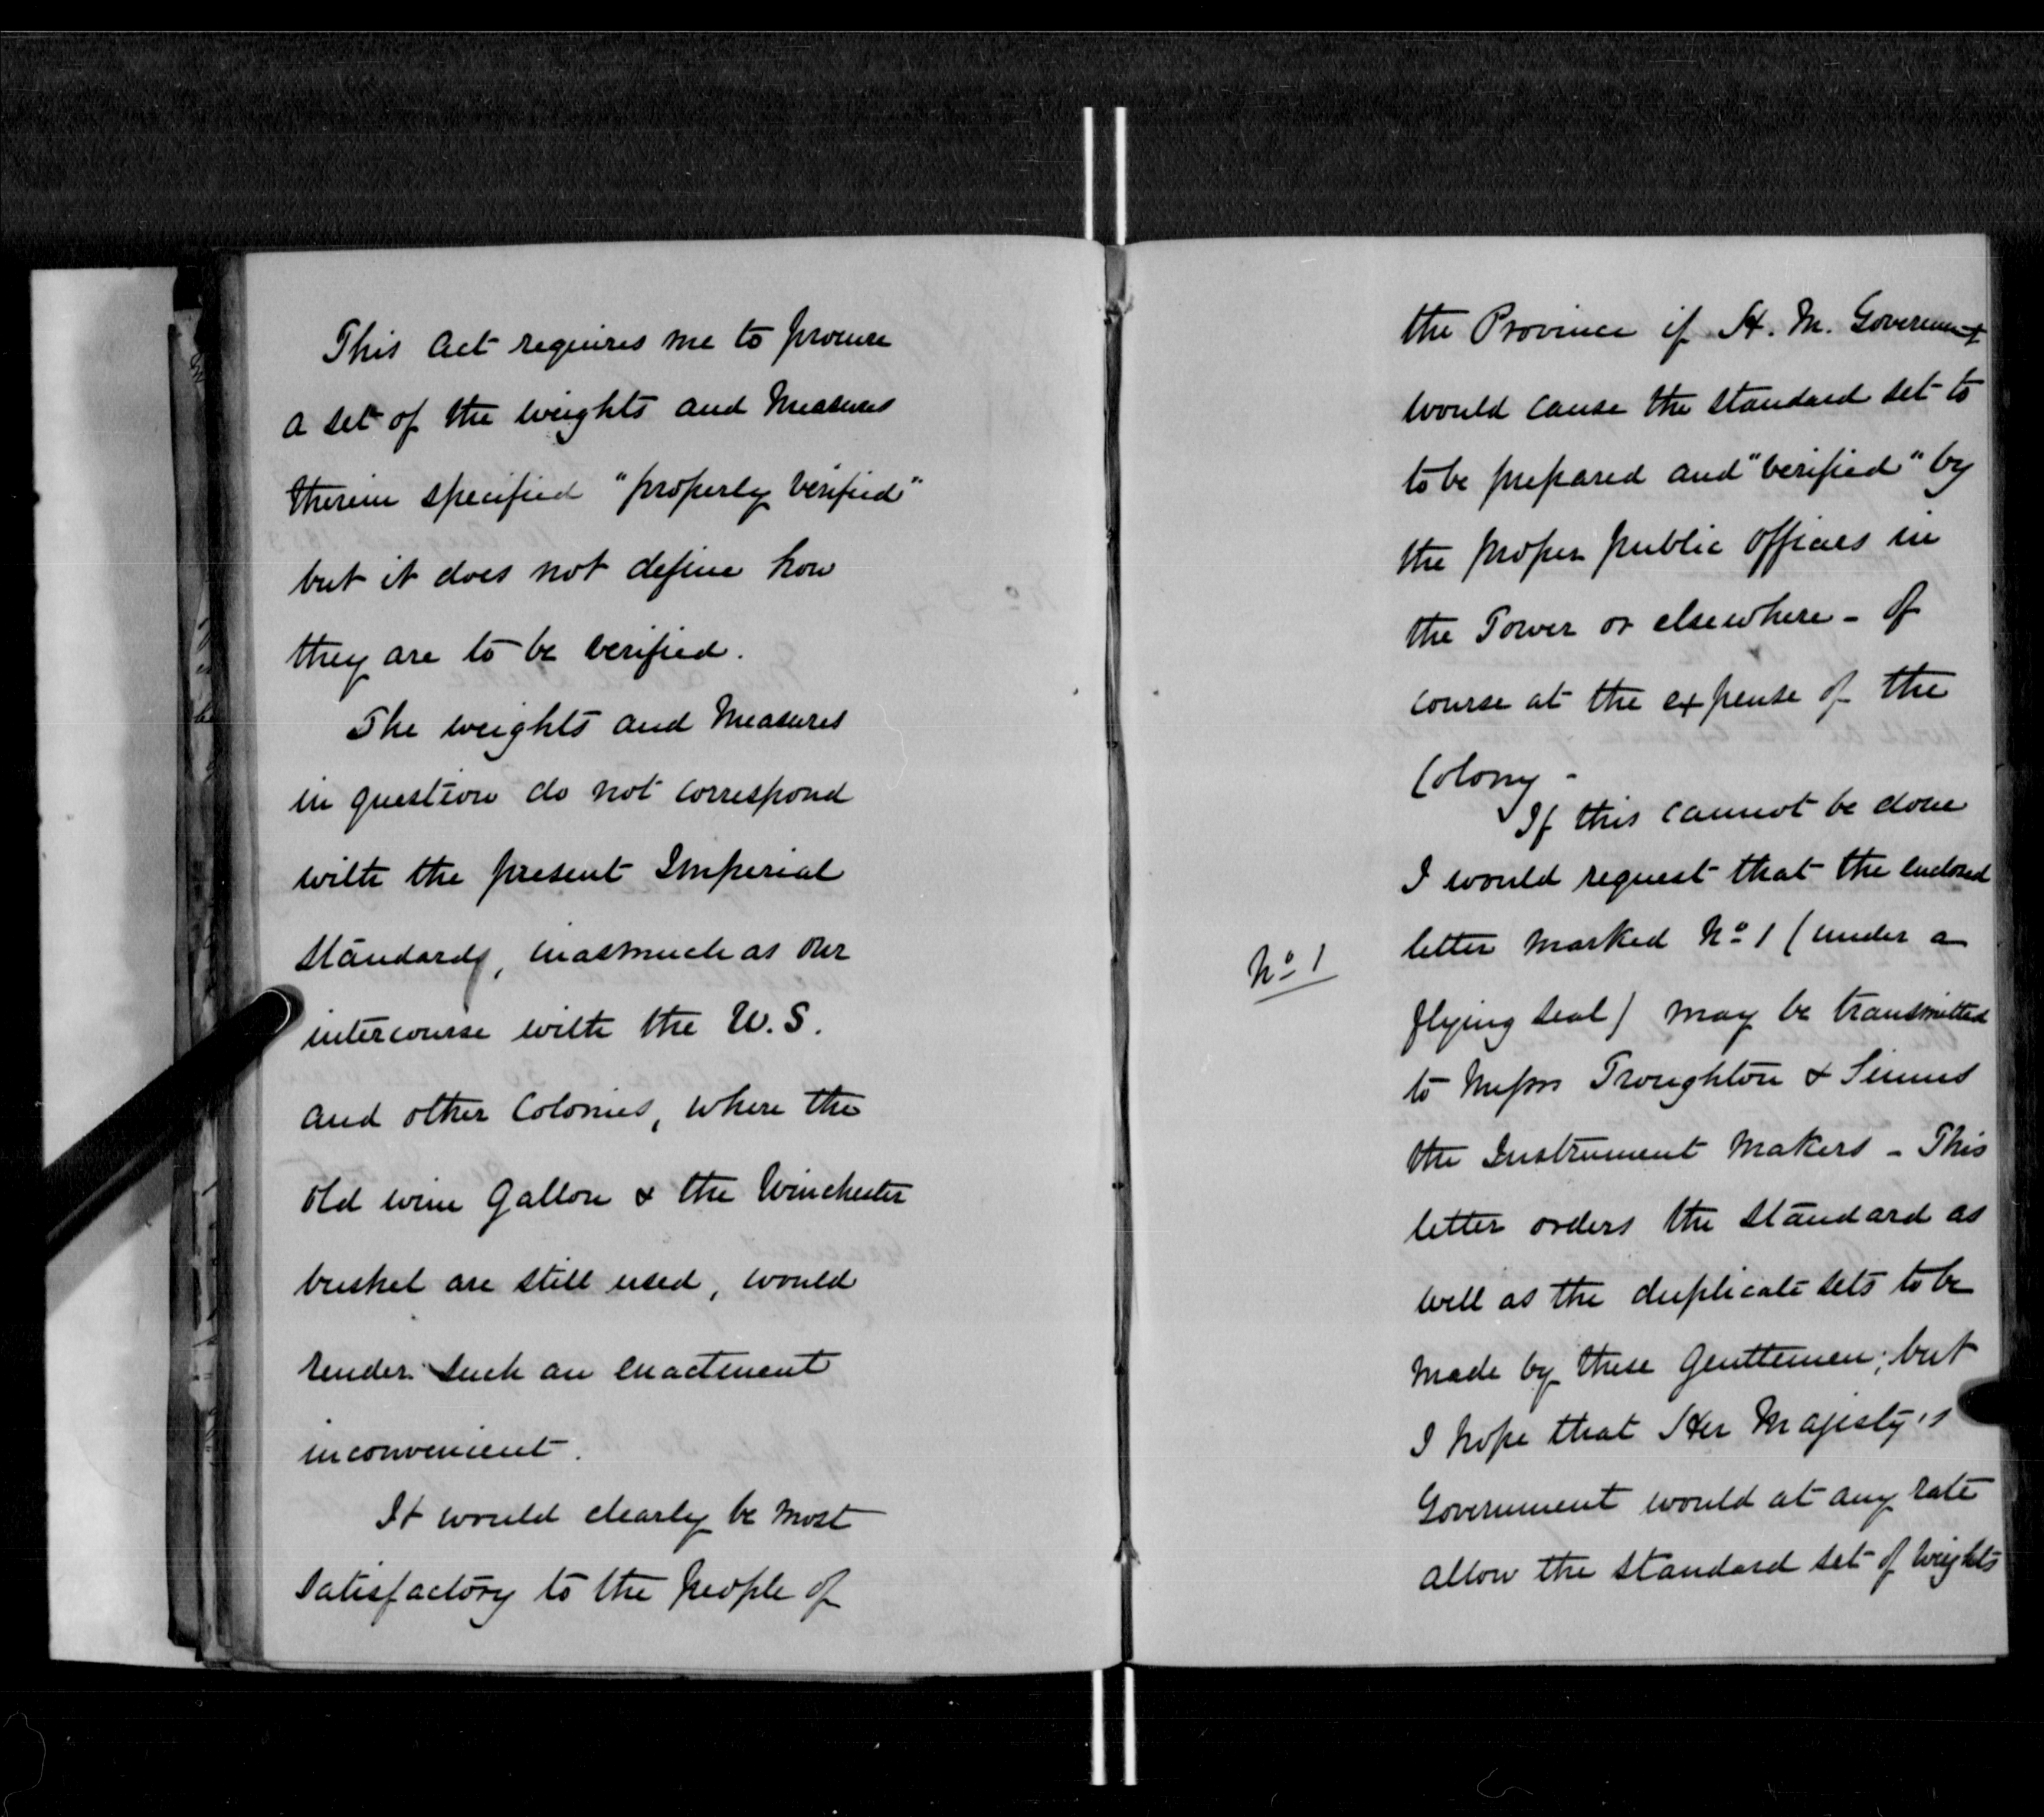 This Act requires me to procure
a set of the weights and Measures
therein specified "properly verified"
but it does not define how
they are to be verified.
The weights and Measures
in question do not correspond
with the present Imperial
Standards, inasmuch as our
intercourse with the U.S.
and other Colonies, where the
old wine Gallon & the Winchester
bushel are still used, would
render such an enactment
inconvenient.
It would clearly be most
satisfactory to the people of
the Province if H. M. Government
would cause the standard set to
to be prepared and "verified" by
the proper public officers in
the Tower or elsewhere - of
course at the expense of the
Colony -
If this cannot be done
I would request that the enclosed
No 1
letter marked No 1 (under a
flying seal) may be transmitted
to Messrs Troughton & Simms
the Instrument Makers - This
letter orders the standard as
well as the duplicate sets to be
made by these Gentlemen; but
I hope that Her Majesty's
Government would at any rate
allow the standard set of weights